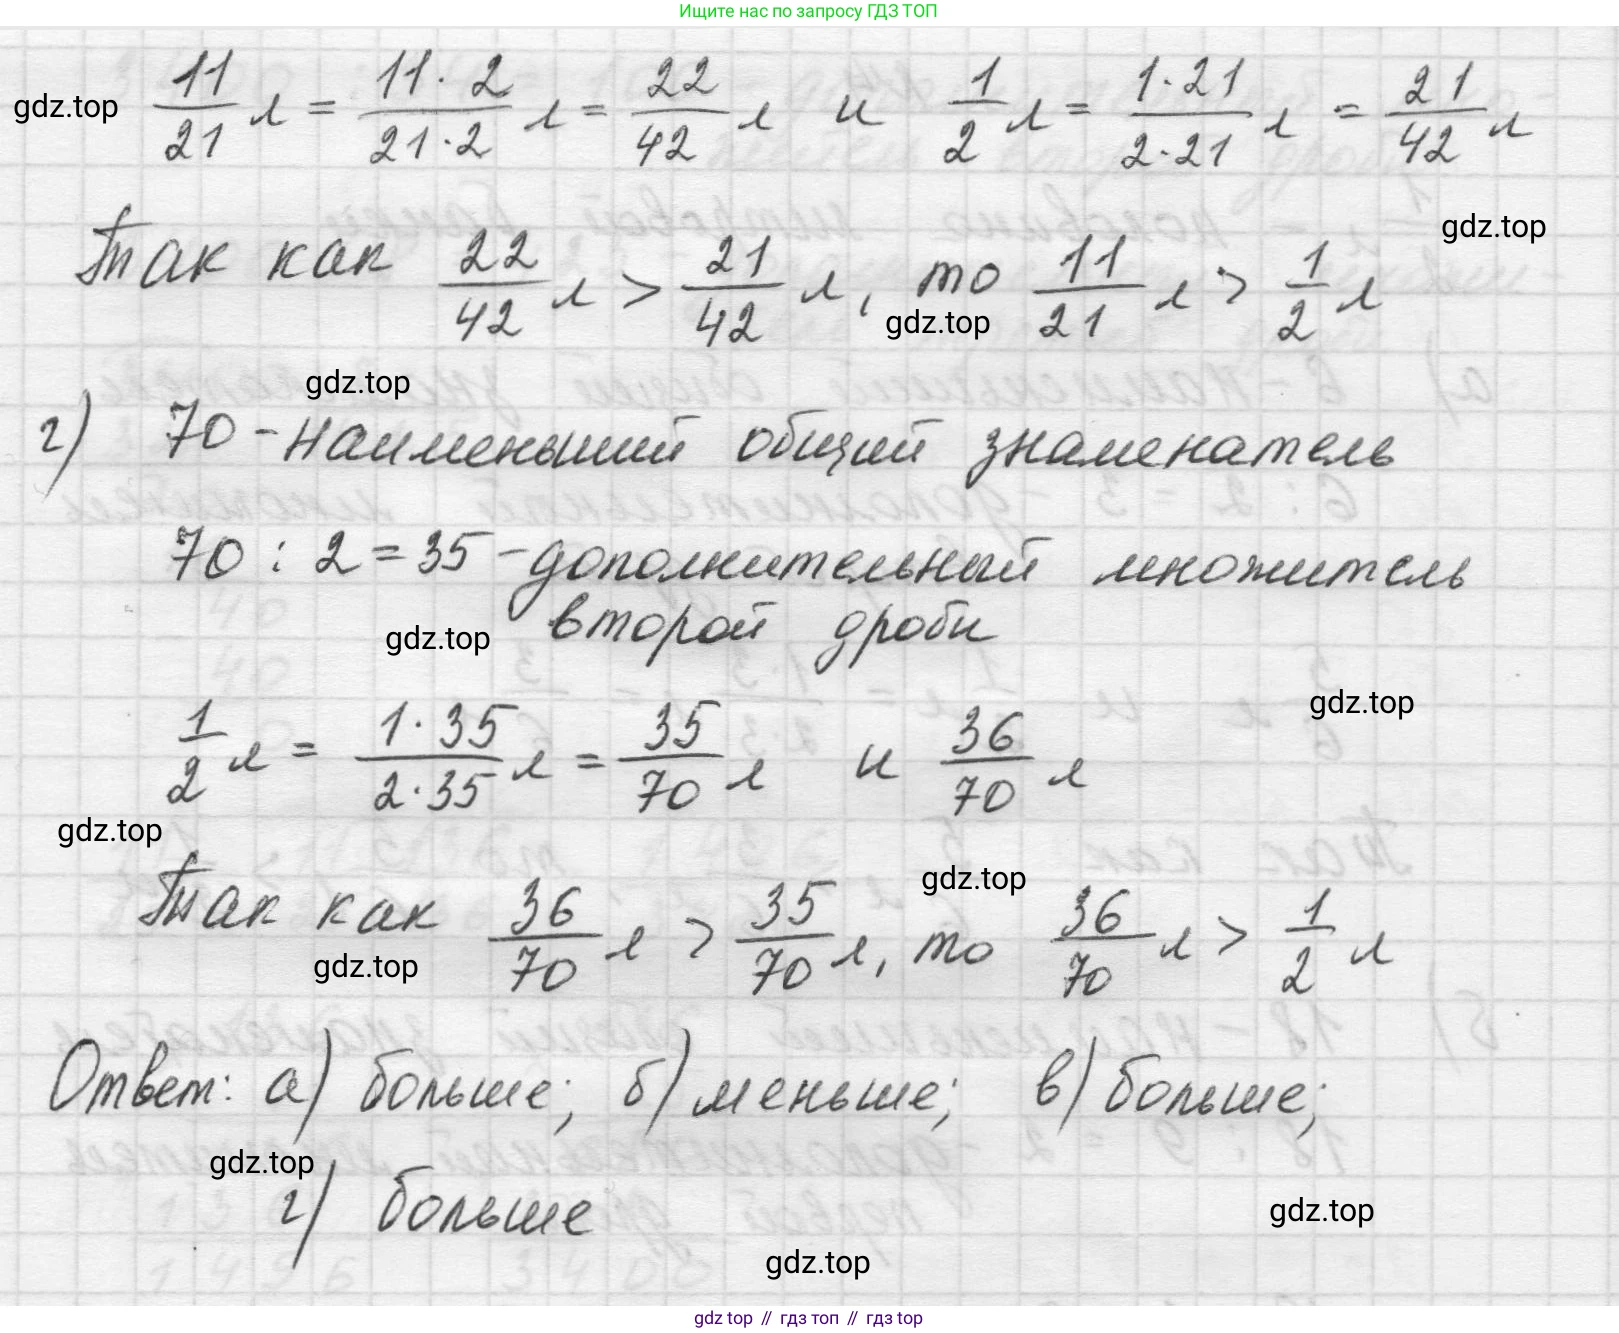 Ищите нас по запросу ГДЗ ТОП
gdz.top 11/21 л = 11·2/21·2 л = 22/42 л и 1/2 л = 1·21/2·21 л = 21/42 л
gdz.top
Так как 22/42 л > 21/42 л, то 11/21 л > 1/2 л
gdz.top
gdz.top
г) 70 - наименьший общий знаменатель
70 : 2 = 35 - дополнительный множитель
gdz.top второй дроби
gdz.top
1/2 л = 1·35/2·35 л = 35/70 л и 36/70 л
gdz.top
gdz.top
Так как 36/70 л > 35/70 л, то 36/70 л > 1/2 л
gdz.top
Ответ: а) больше; б) меньше; в) больше;
gdz.top
г) больше
gdz.top
gdz.top
gdz top // гдз топ // гдз top